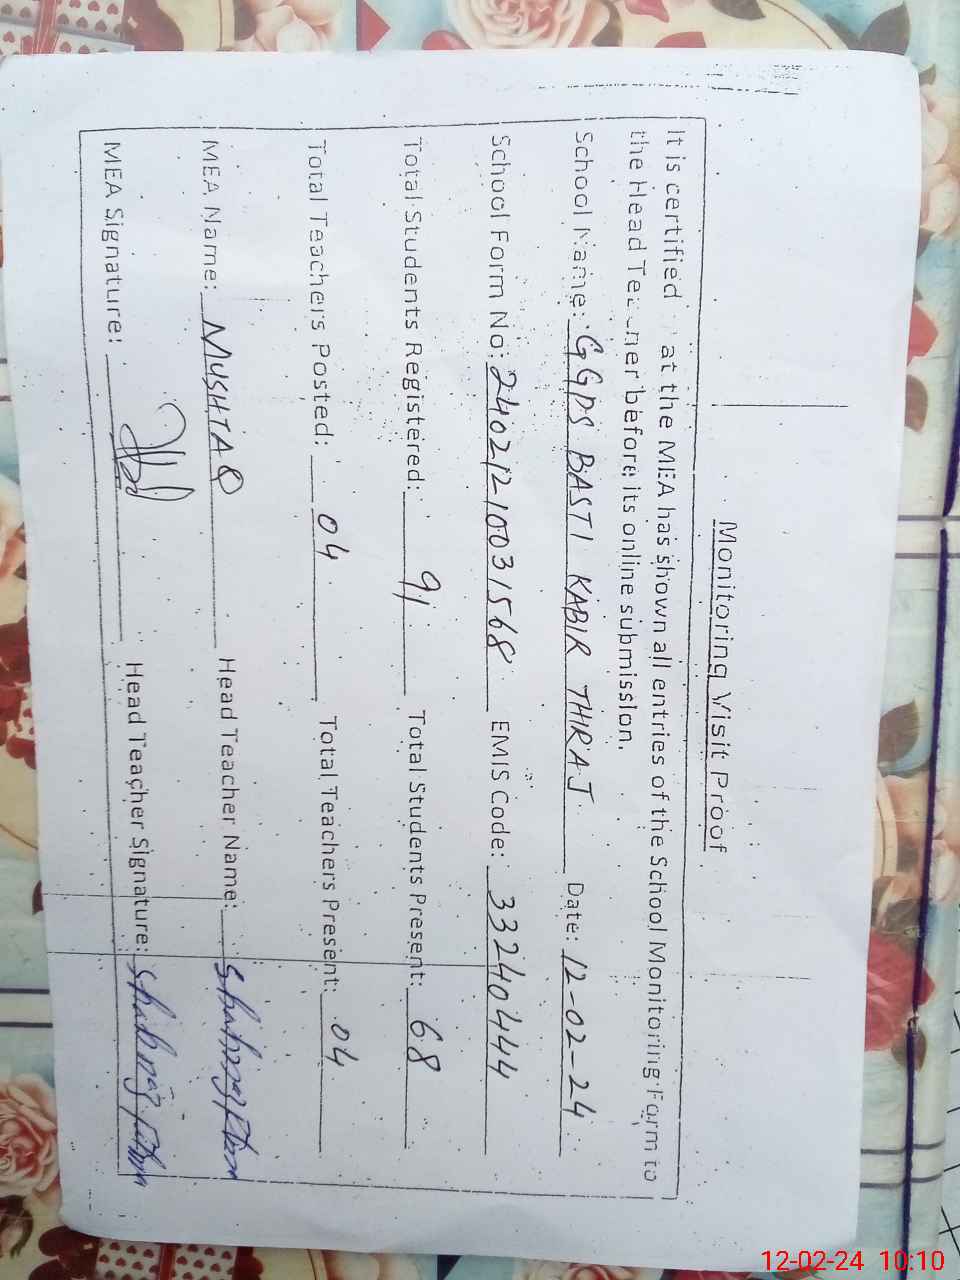 Monitoring Visit Proof
It is certified at the MEA has shown all entries of the School Monitoring Form to
the Head Teacher before its online submission.
School Name: GGPS BASTI KABIR THIRAJ Date: 12-02-24
School Form No: 240212-10031568 EMIS Code: 33240444
Total Students Registered: 91 Total Students Present: 68
Total Teachers Posted: 04 Total Teachers Present: 04
MEA Name: MUSHTAQ Head Teacher Name:
MEA Signature: Head Teacher Signature:
12-02-24 10:10